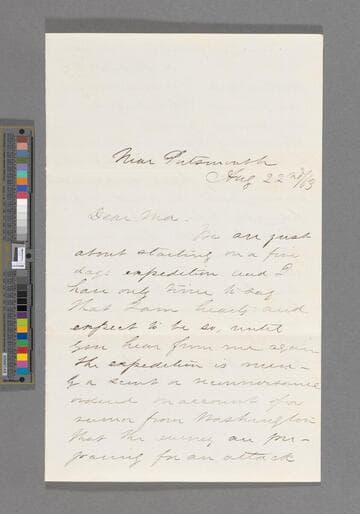 Near Portsmouth
Aug 22nd/63
Dear Ma.
We are just
about starting on a five
days expedition and I
have only time to say
that I am hearty and
expect to be so, until
you hear from me again
The expedition is mere-
ly a scout a reconnoisance
ordered on account of a
rumor from Washington
that the enemy are pre-
paring for an attack